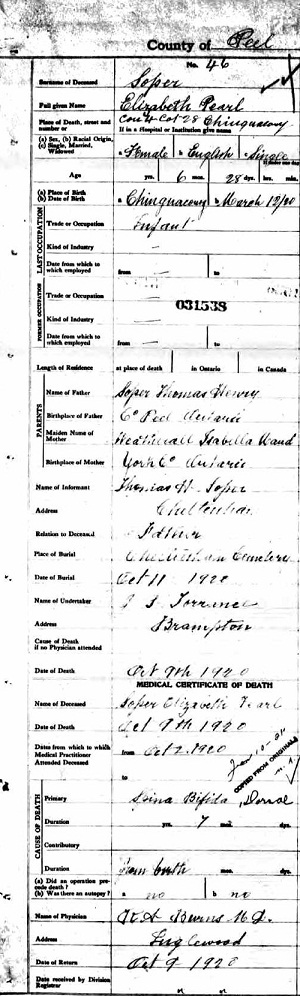 County of Peel
No. 46
Surname of Deceased Soper
Full given Name Elizabeth Pearl
Place of Death, street and number or Con 4 Lot 28 Chinguacousy
If in a Hospital or Institution give name
(a) Sex, (b) Racial Origin, (c) Single, Married, Widowed a Female b English c Single
Age yrs. 6 mos. 28 dys. hrs. min.
(a) Place of Birth
(b) Date of Birth a Chinguacousy b March 12/20
LAST OCCUPATION
Trade or Occupation Infant
Kind of Industry —
Date from which to which employed from — to
FORMER OCCUPATION
Trade or Occupation —
Kind of Industry 031538
Date from which to which employed from — to
Length of Residence at place of death in Ontario in Canada
PARENTS
Name of Father Soper Thomas Henry
Birthplace of Father Co Peel Ontario
Maiden Name of Mother Isabella Maud
Birthplace of Mother York Co Ontario
Name of Informant Thomas H. Soper
Address Cheltenham
Relation to Deceased Father
Place of Burial Cheltenham Cemetery
Date of Burial Oct 11 1920
Name of Undertaker Torrance
Address Brampton
Cause of Death if no Physician attended
Date of Death Oct 9th 1920
MEDICAL CERTIFICATE OF DEATH
Name of Deceased Soper Elizabeth Pearl
Date of Death Oct 9th 1920
Dates from which to which Medical Practitioner Attended Deceased from Oct 2 1920
to
COPIED FROM ORIGINALS
CAUSE OF DEATH
Primary Spina Bifida, Dorsal
Duration yrs. 7 mos. dys.
Contributory
Duration from birth
(a) Did an operation precede death?
(b) Was there an autopsy? a no b no
Name of Physician Burns M.D.
Address Inglewood
Date of Return Oct 9 1920
Date received by Division Registrar